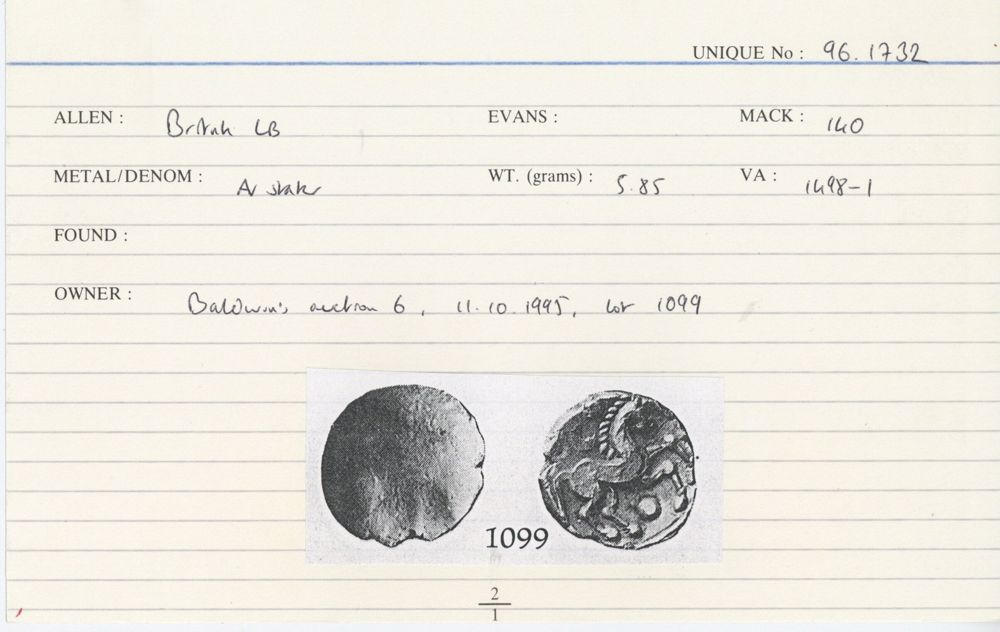 UNIQUE No : 96.1732
ALLEN : British LB EVANS : MACK : 140
METAL/DENOM : AV stater WT. (grams) : 5.85 VA : 1498-1
FOUND :
OWNER : Baldwin's auction 6, 11.10.1995, lot 1099
1099
2
1